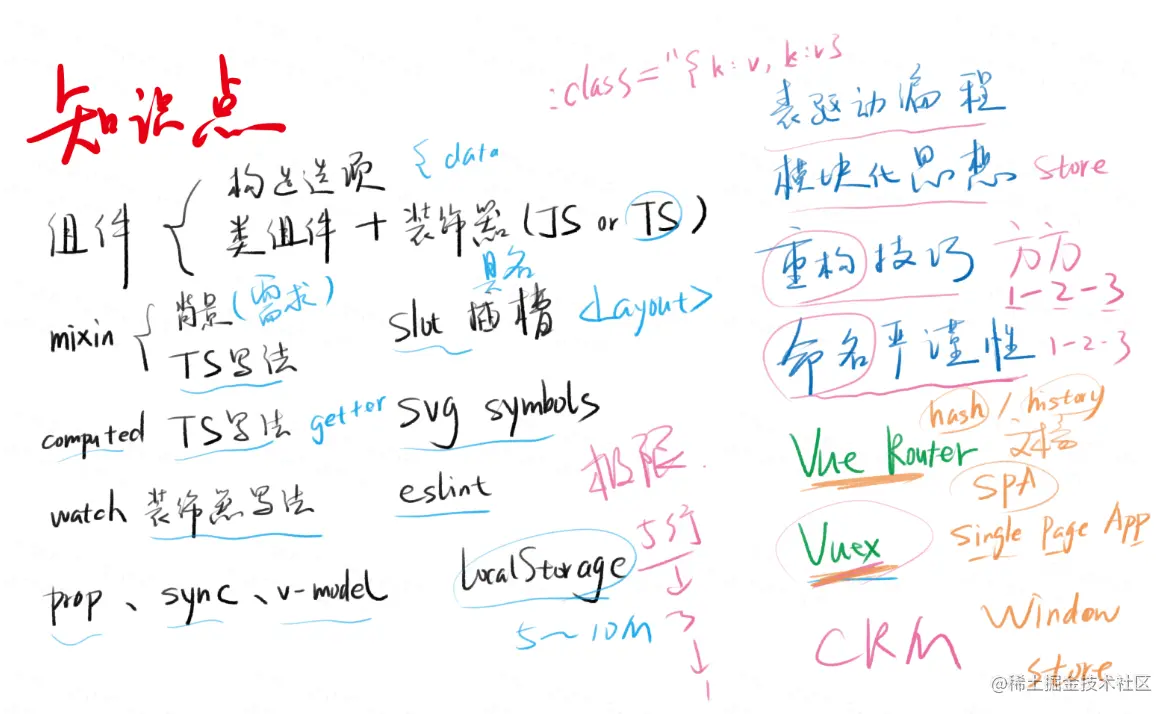 知识点
:class="{ k:v, k:v}
组件
构造选项 { data
类组件 + 装饰器 (JS or TS)
mixin
背景 (需求)
TS写法
具名
slot 插槽 <Layout>
computed TS写法 getter
svg symbols
watch 装饰器写法
eslint
极限
5行
↓
3
↓
1
prop、sync、v-model
LocalStorage
5~10M
表驱动编程
模块化思想 store
重构技巧 方方
1-2-3
命名严谨性 1-2-3
hash / history
Vue Router
SPA
Vuex
Single Page App
CRM
Window
store
@稀土掘金技术社区